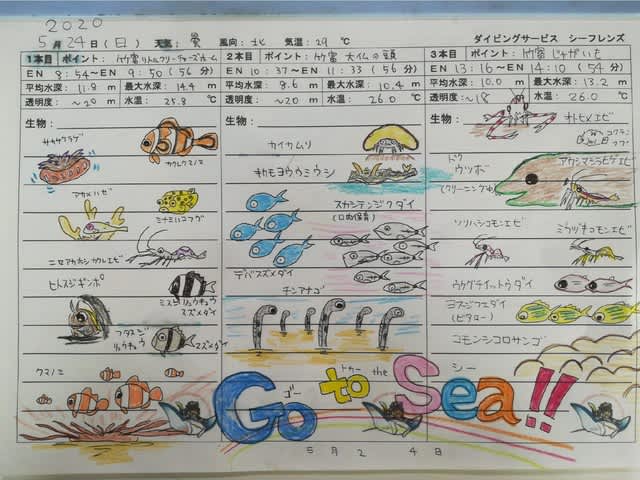 2020
5月24日(日) 天気: 曇 風向: 北 気温: 29 ℃ ダイビングサービス シーフレンズ
1本目 ポイント: 竹富 リトルフリーチャーズホーム
EN 8:54〜EN 9:50 (56 分)
平均水深: 11.8 m 最大水深: 14.4 m
透明度: 〜20 m 水温: 25.8 ℃
生物:
カクレクマノミ
アカメハゼ
ミナミハコフグ
ニセアカホシカクレエビ
ヒトスジギンポ
ミスジリュウキュウスズメダイ
フタスジ
リュウキュウ
スズメダイ
クマノミ
2本目 ポイント: 竹富 大仏の頭
EN 10:37〜EN 11:33 (56 分)
平均水深: 8.6 m 最大水深: 10.4 m
透明度: 〜20 m 水温: 26.0 ℃
生物:
カイカムリ
キカモヨウウミウシ
スカシテンジクダイ
(口内保育)
デバスズメダイ
チンアナゴ
3本目 ポイント: 竹富 じゃがいも
EN 13:16〜EN 14:10 (54 分)
平均水深: 10.0 m 最大水深: 13.2 m
透明度: 〜18 水温: 26.0 ℃
生物:
オトヒメエビ
ドク
ウツボ
(クリーニング中)
アカシマシラヒゲエビ
ソリハシコモンエビ
ミカヅキコモンエビ
ウケグチイットウダイ
ヨスジフエダイ
(ビタロー)
コモンシコロサンゴ
Go to the Sea!!
ゴー トゥー シー
5月24日